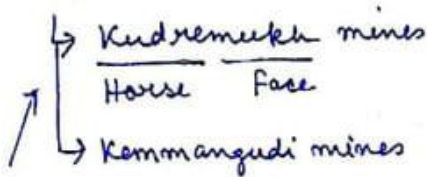 Kudremukh mines
Horse Face
Kemmangudi mines